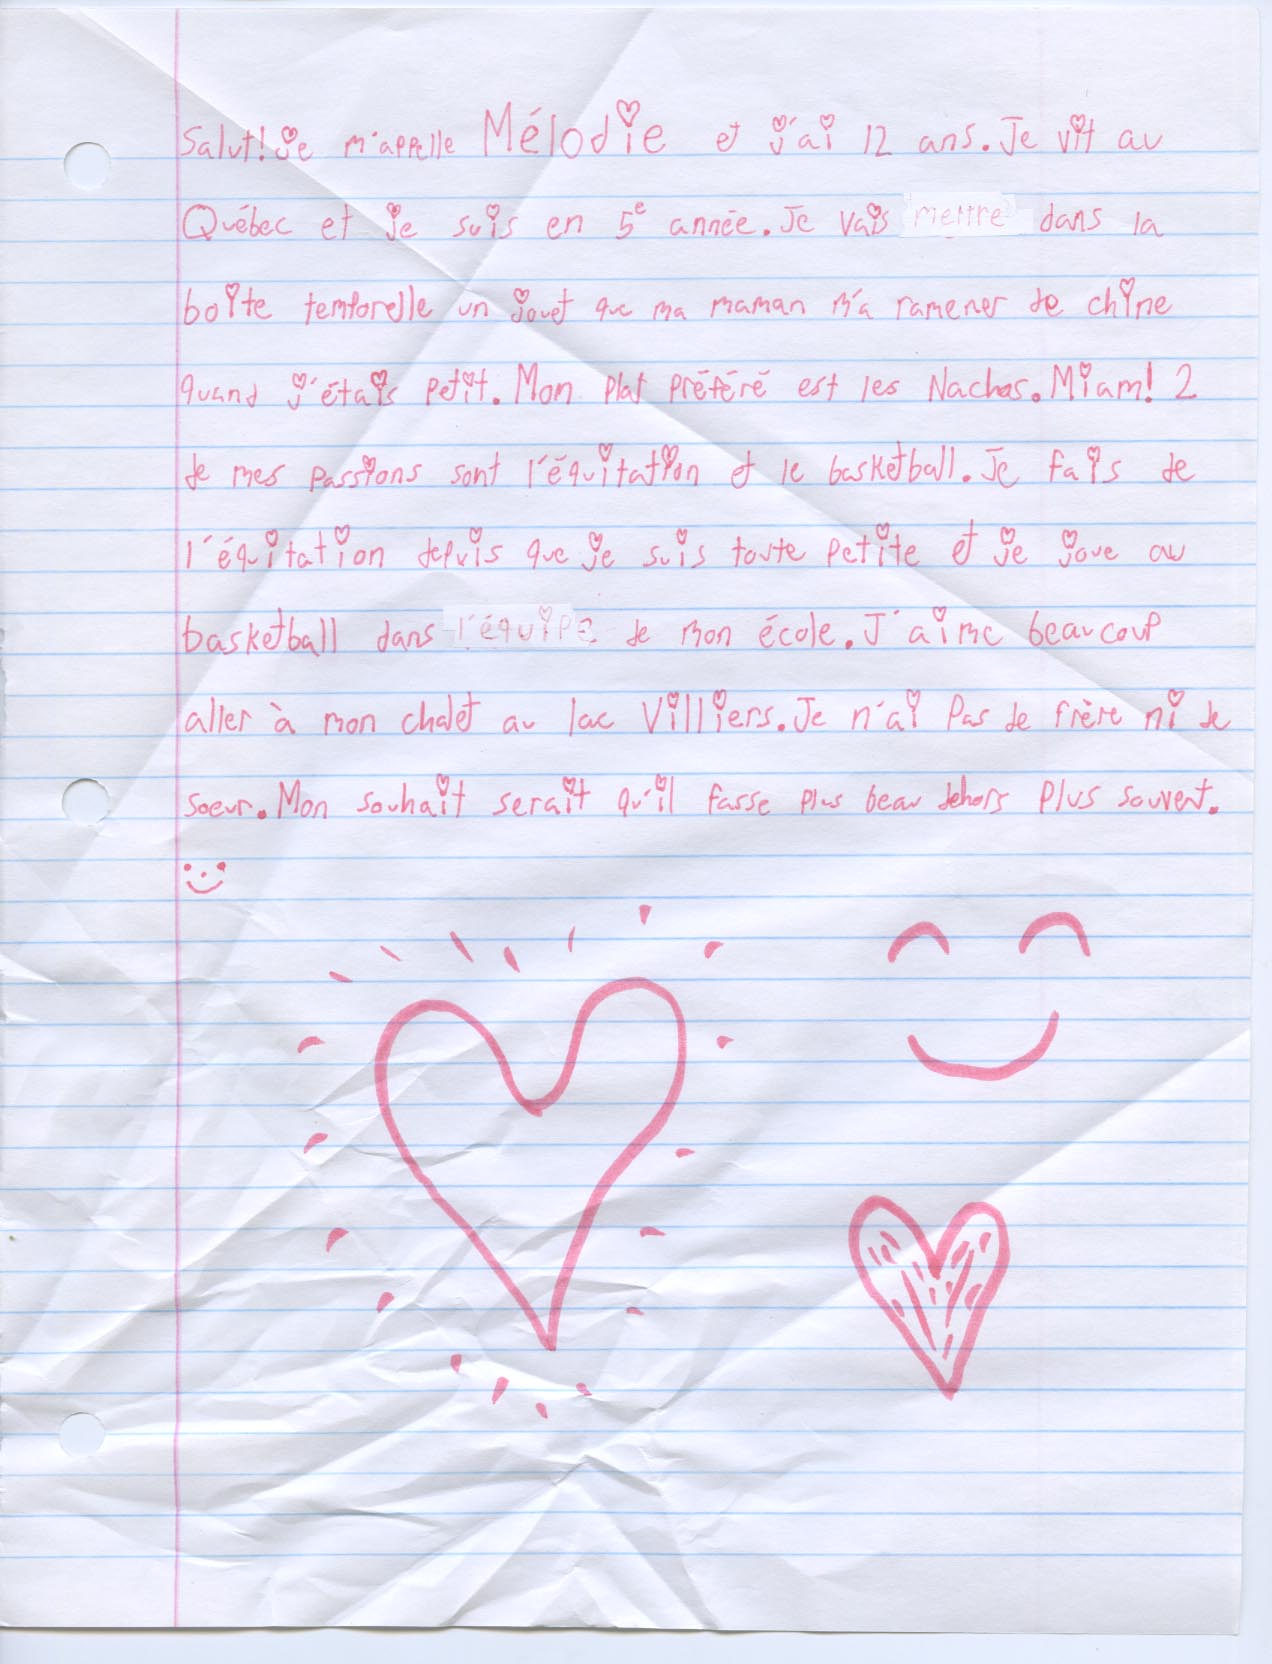 Salut! Je m'appelle Mélodie et j'ai 12 ans. Je vit au
Québec et je suis en 5e année. Je vais mettre dans la
boîte temporelle un jouet que ma maman m'a ramener de chine
quand j'étais petit. Mon plat préféré est les Nachos. Miam! 2
de mes passions sont l'équitation et le basketball. Je fais de
l'équitation depuis que je suis toute petite et je joue au
basketball dans l'équipe de mon école. J'aime beaucoup
aller à mon chalet au lac Villiers. Je n'ai pas de frère ni de
soeur. Mon souhait serait qu'il fasse plus beau dehors plus souvent.